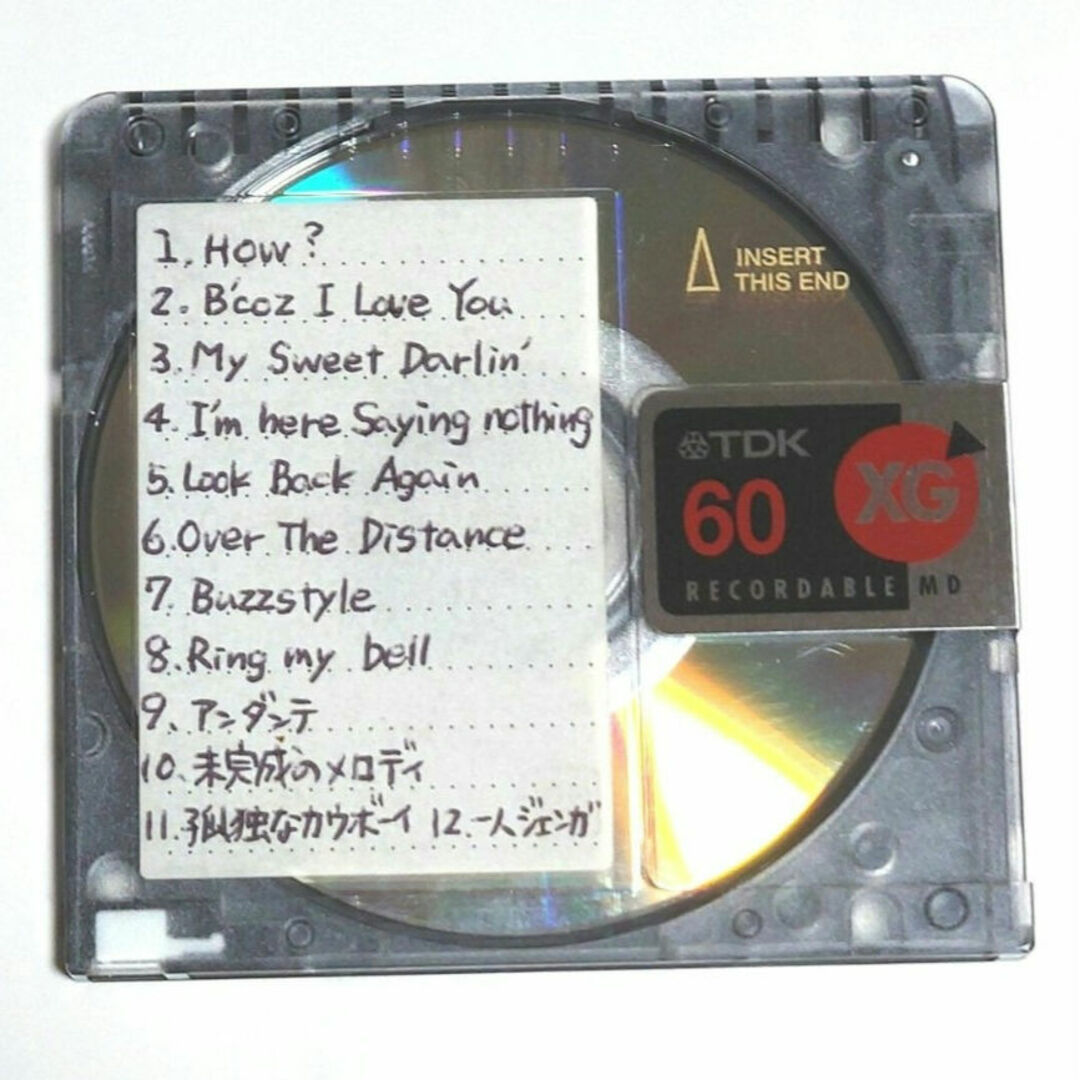 1. How?
2. B'coz I Love You
3. My Sweet Darlin'
4. I'm here Saying nothing
5. Look Back Again
6. Over The Distance
7. Buzzstyle
8. Ring my bell
9. アンダンテ
10. 未完成のメロディ
11. 孤独なカウボーイ 12. 一人ジェンガ
INSERT
THIS END
TDK
XG
60
RECORDABLE MD